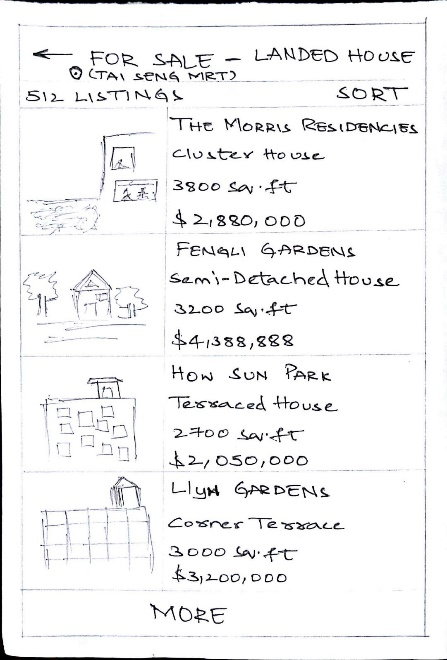 ← FOR SALE – LANDED HOUSE
(TAI SENG MRT)
512 LISTINGS SORT
THE MORRIS RESIDENCIES
Cluster House
3800 Sq.ft
$2,880,000
FENGLI GARDENS
Semi-Detached House
3200 Sq.ft
$4,388,888
HOW SUN PARK
Terraced House
2700 Sq.ft
$2,050,000
LlyN GARDENS
Corner Terrace
3000 Sq.ft
$3,200,000
MORE